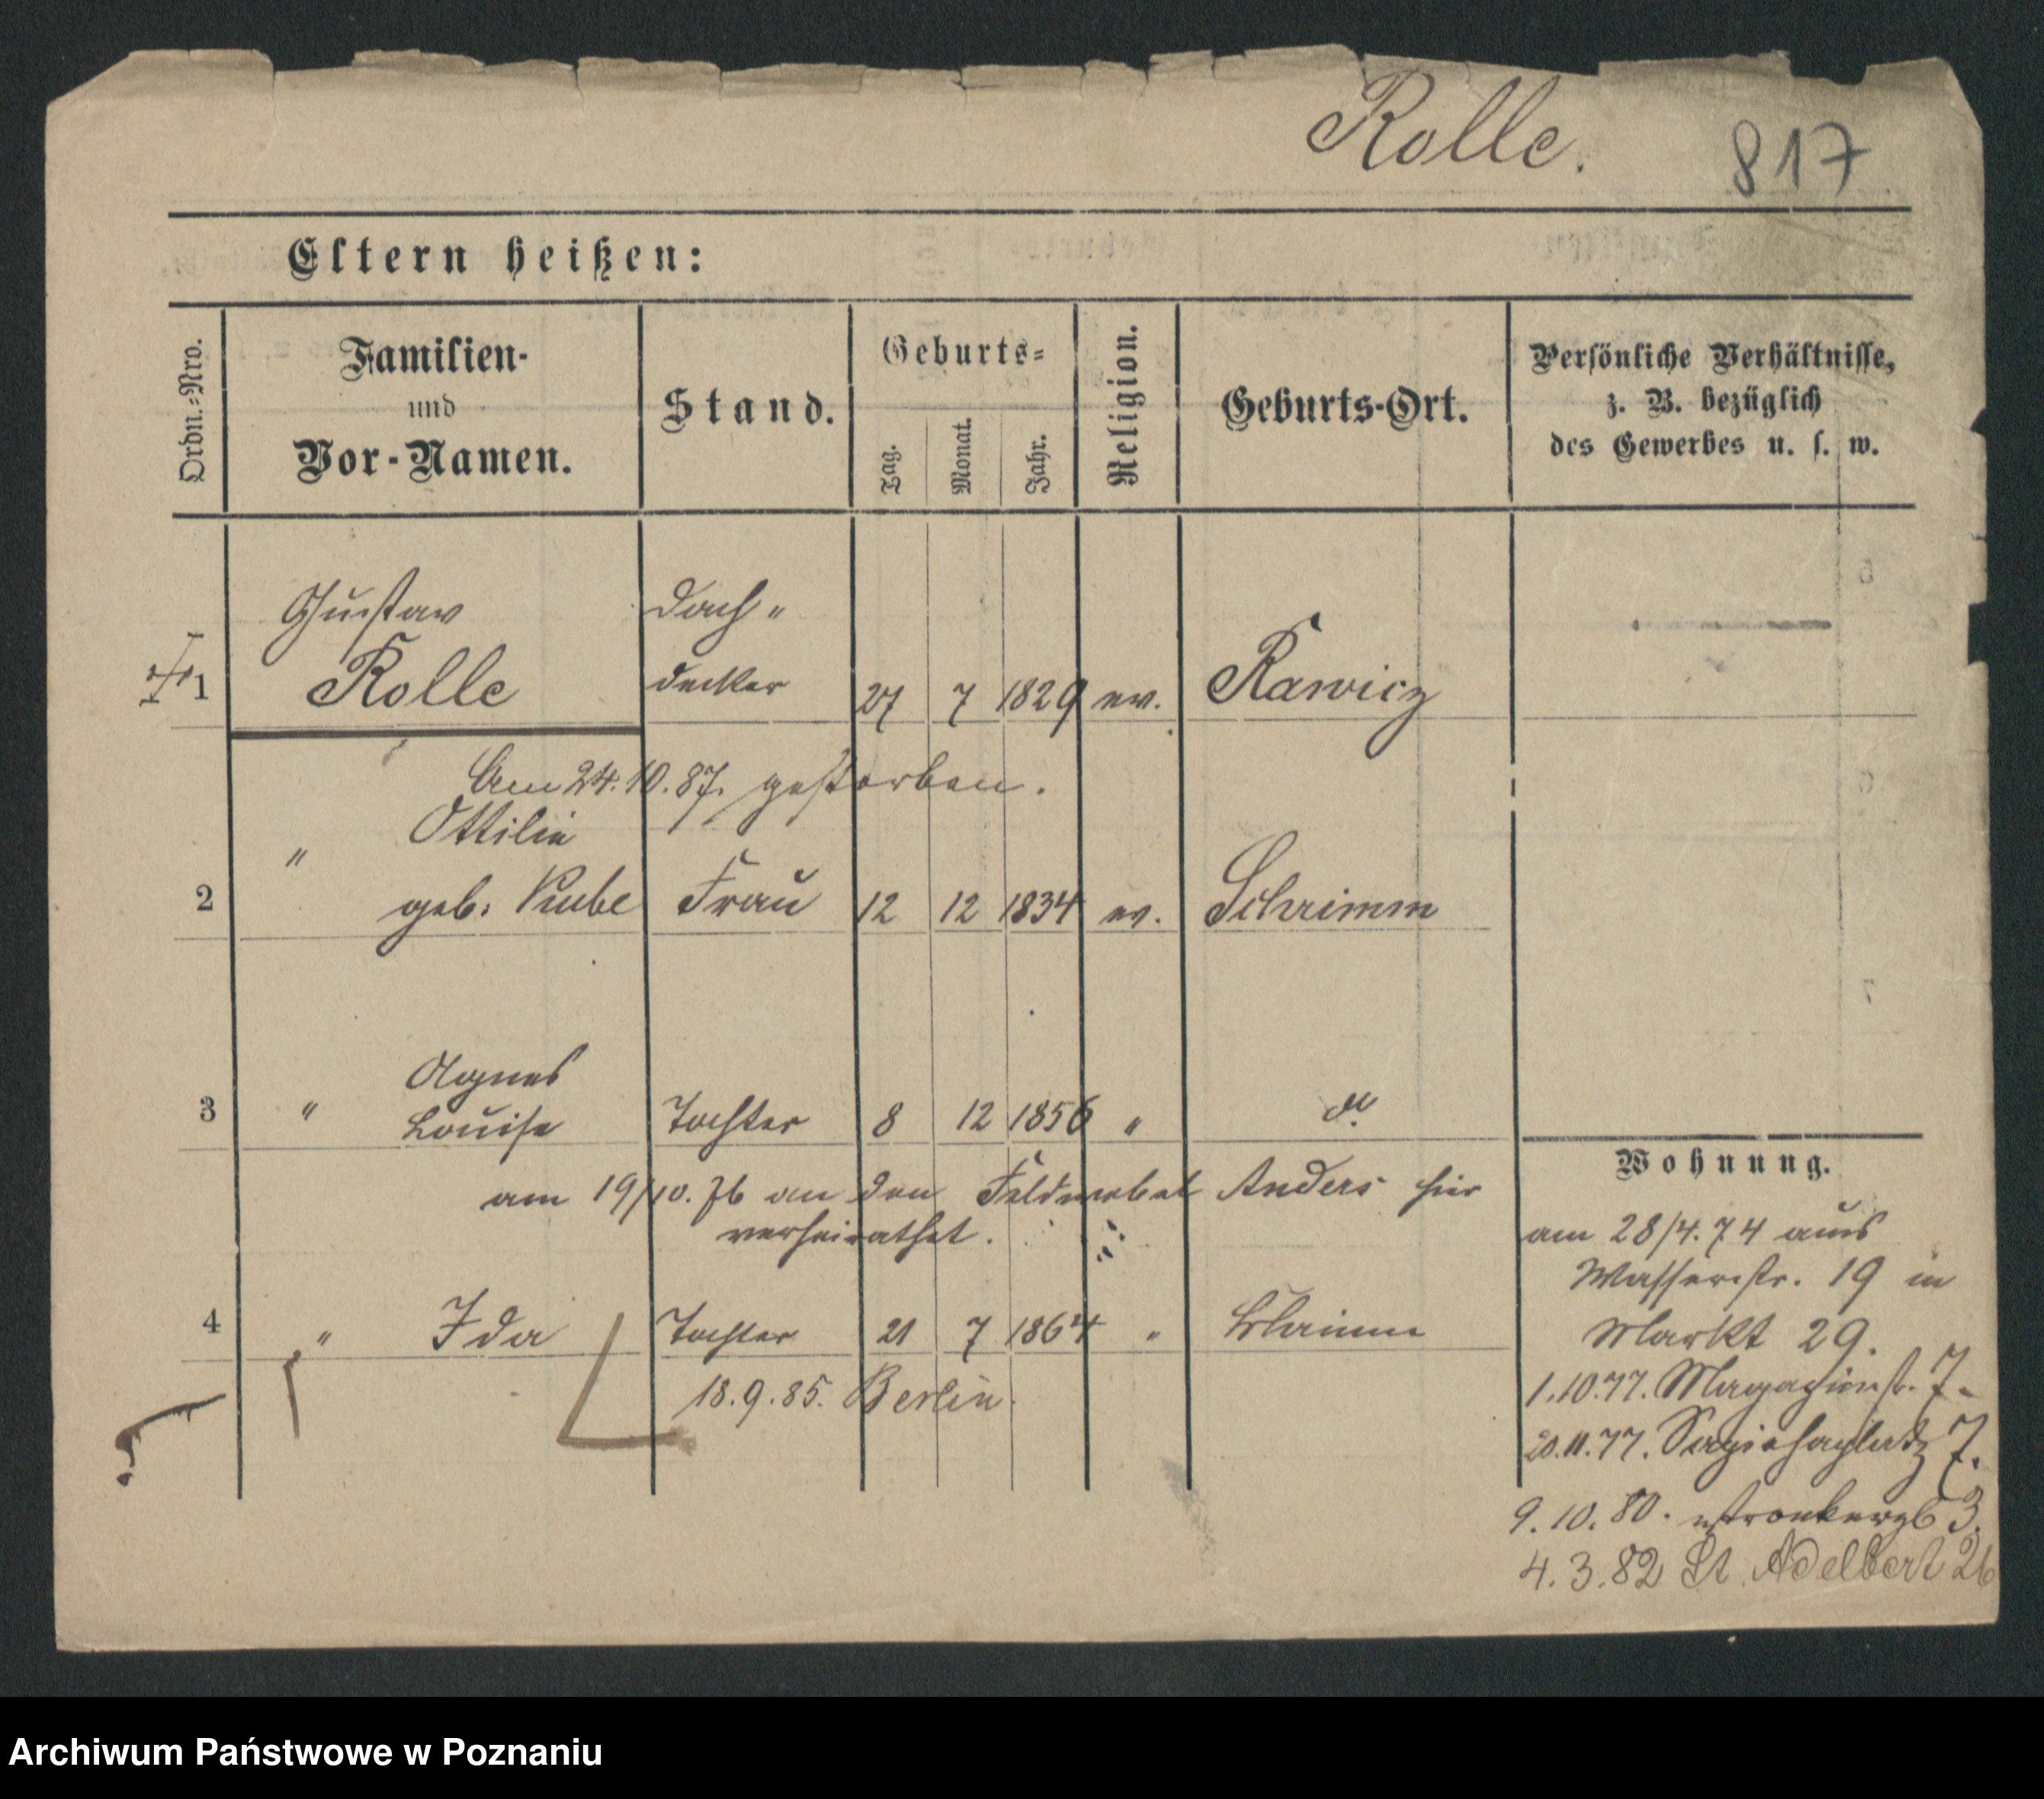 Rolle. 817
Eltern heißen:
Ordn.-Nro. Familien- und Vor-Namen. Stand. Geburts- Tag. Monat. Jahr. Religion. Geburts-Ort. Persönliche Verhältnisse, z. B. bezüglich des Gewerbes u. s. w.
Gustav Dach"
1 Rolle decker 27 7 1829 ev. Rawicz
Am 24.10.87. gestorben.
" Ottilie
2 geb. Kube Frau 12 12 1834 ev. Schrimm
Agnes
3 " Louise Tochter 8 12 1856 " do
am 19/10. 76 an den Feldwebel Anders hier
verheirathet.
4 " Ida Tochter 21 7 1864 "
18.9.85. Berlin.
Wohnung.
am 28/4. 74 aus
Wasserstr. 19 in
Markt 29.
1.10.77. Magazinst. 7.
20.11.77. Sapiehaplatz 7.
9.10.80. 3.
4.3.82 St. Adelbert 26
Archiwum Państwowe w Poznaniu